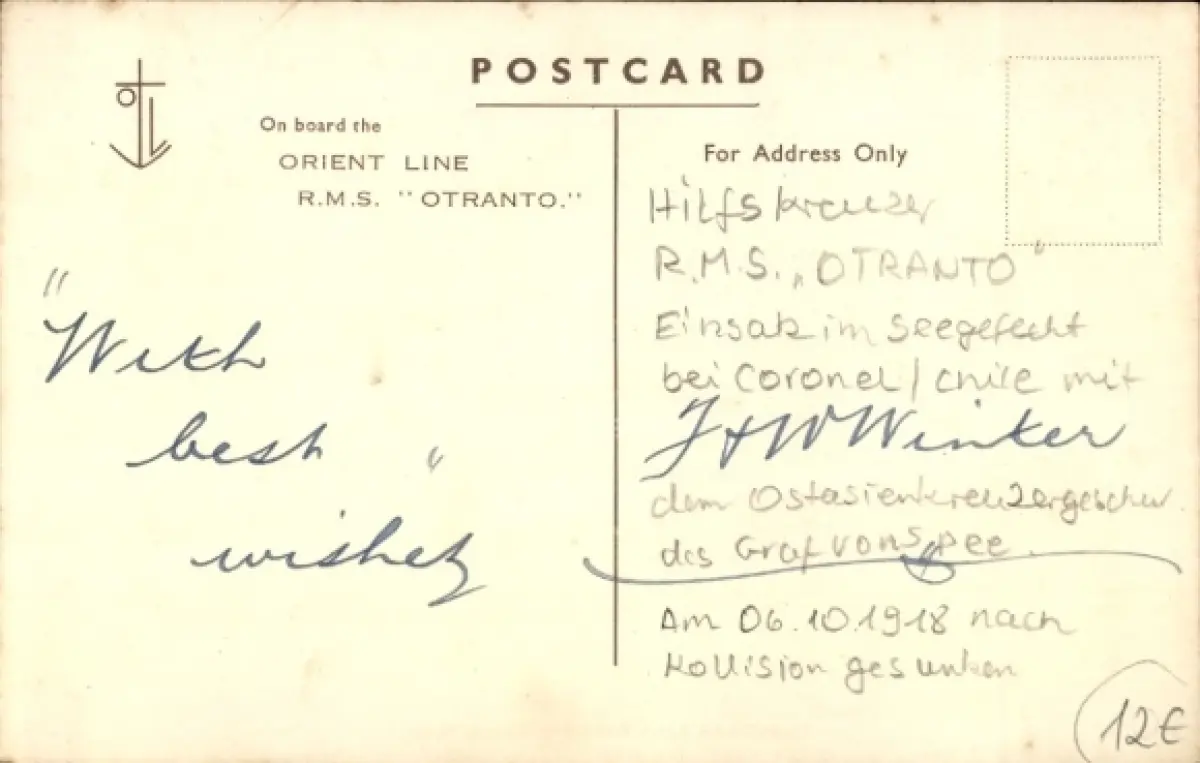 POSTCARD
On board the
ORIENT LINE
R.M.S. "OTRANTO."
For Address Only
"With
best "
wishes
Hilfskreuzer
R.M.S. „OTRANTO"
Einsatz im Seegefecht
bei Coronel / Chile mit
Winker
dem Ostasienkreuzergeschw.
des Graf von Spee
Am 06.10.1918 nach
Kollision gesunken
12€